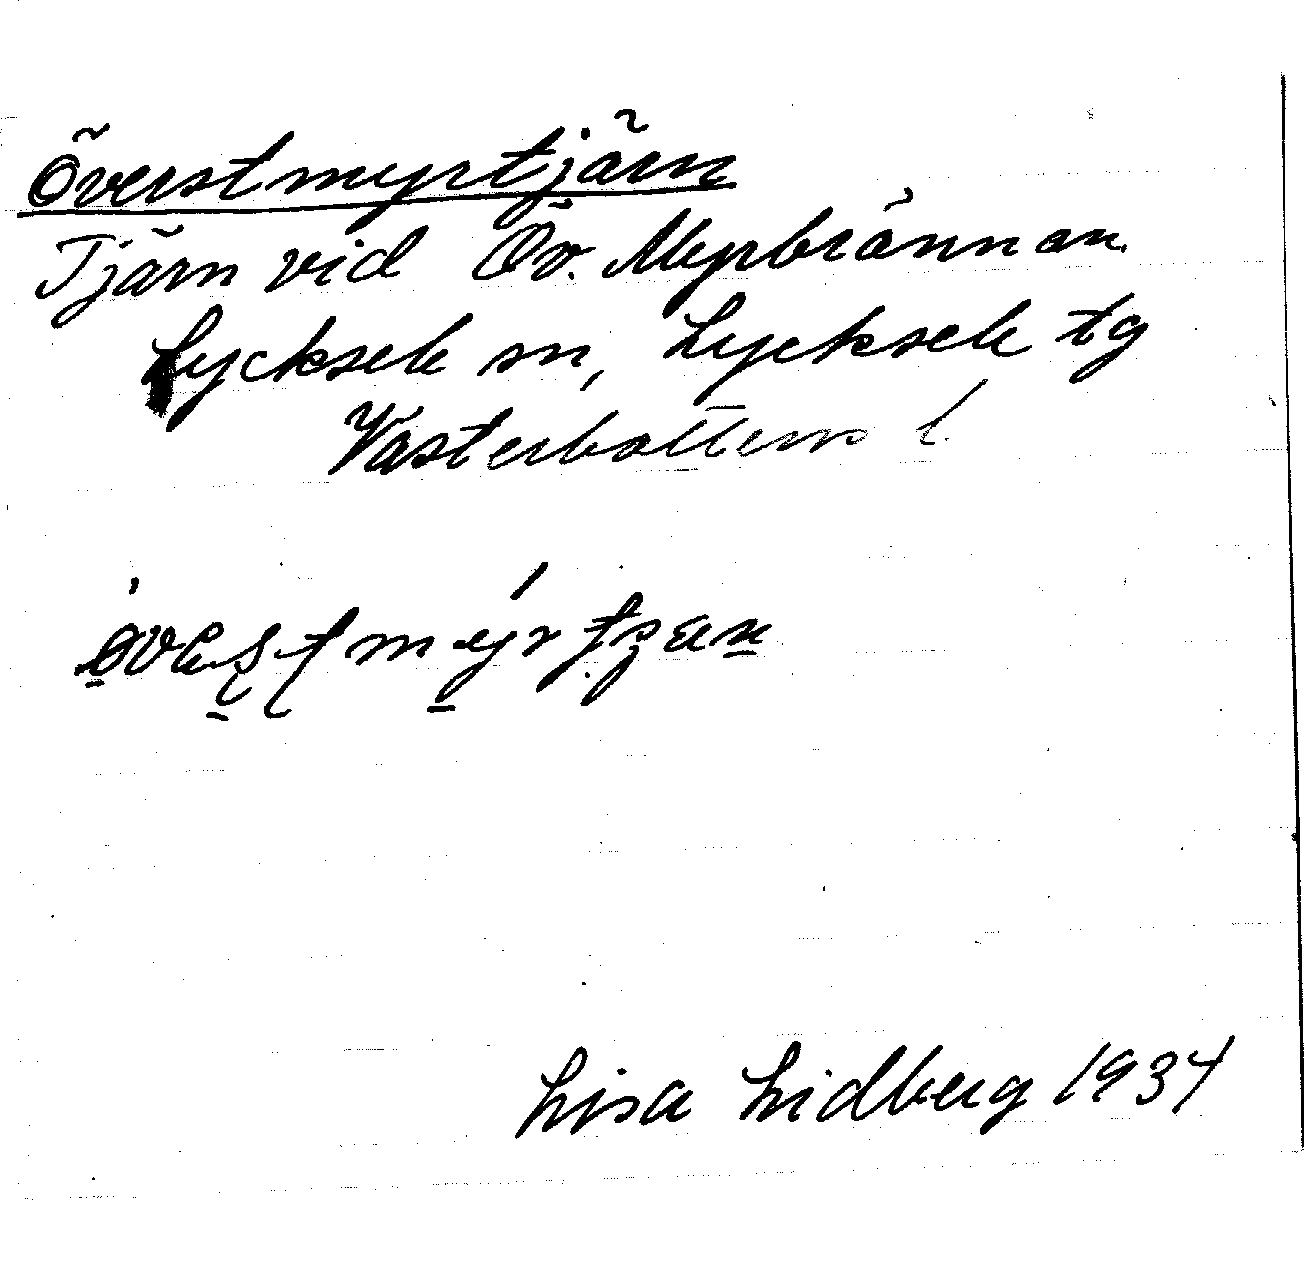 Överstmyrtjärn
Tjärn vid Öv. Myrbrännan.
Lycksele sn, Lycksele tg
Västerbottens l.
Lisa Lidberg 1934